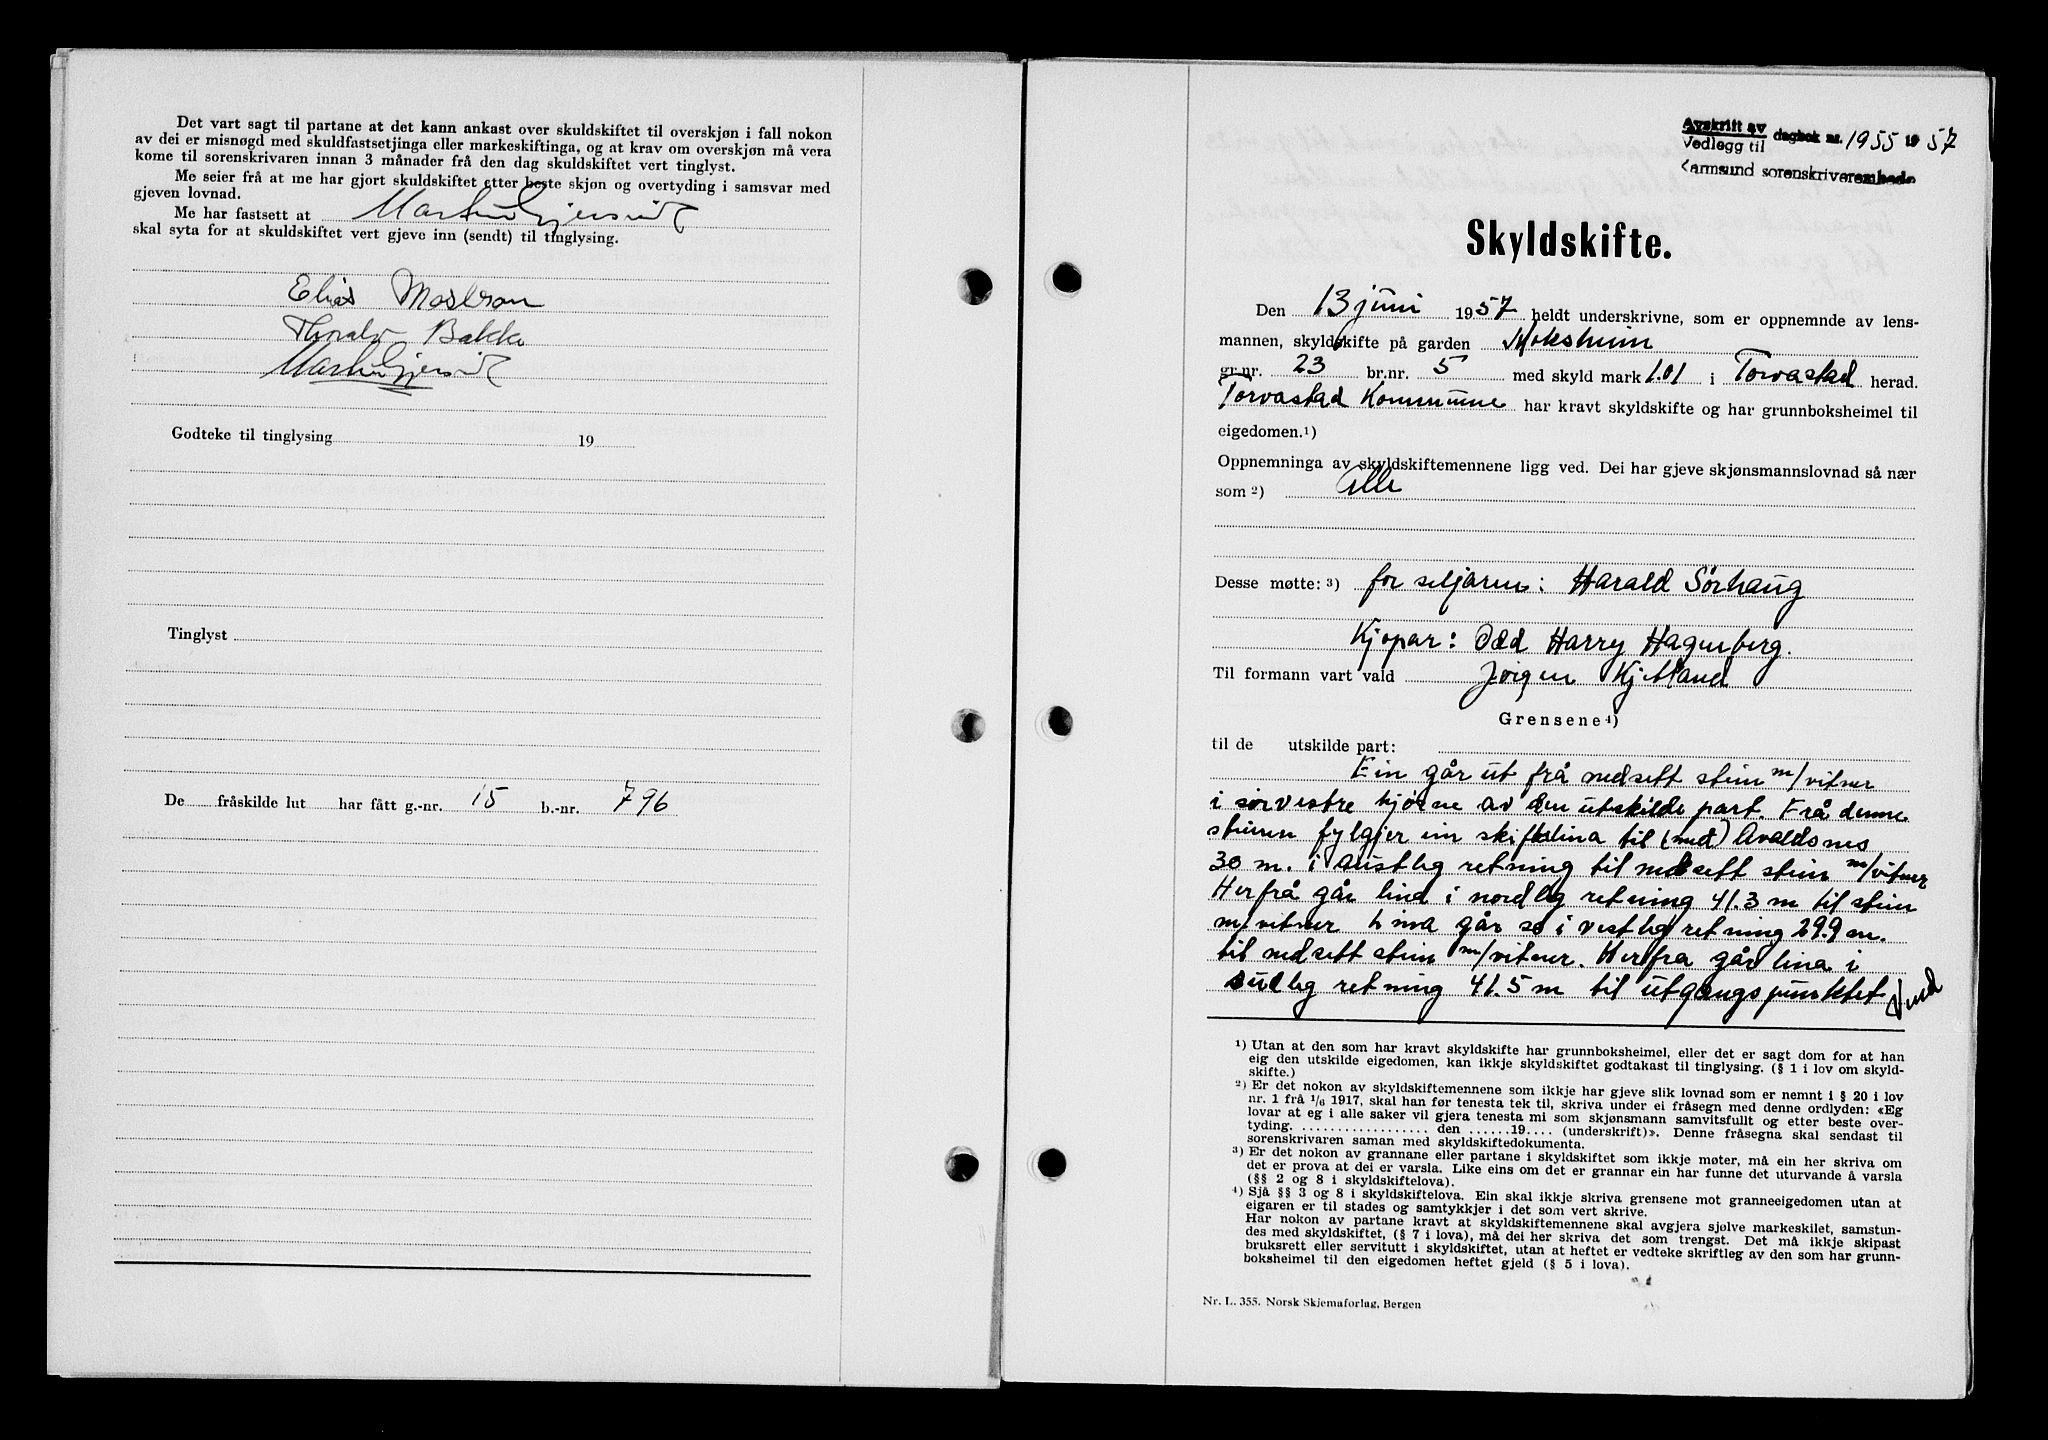 Det vart sagt til partane at det kann ankast over skuldskiftet til overskjøn i fall nokon
av dei er misnøgd med skuldfastsetjinga eller markeskiftinga, og at krav om overskjøn må vera
kome til sorenskrivaren innan 3 månader frå den dag skuldskiftet vert tinglyst.
Me seier frå at me har gjort skuldskiftet etter beste skjøn og overtyding i samsvar med
gjeven lovnad.
Me har fastsett at Martin Gjersvik
skal syta for at skuldskiftet vert gjeve inn (sendt) til tinglysing.
Elias
Thoralv Bakke
Martin Gjersvik
Godteke til tinglysing 19
Tinglyst
De fråskilde lut har fått g.-nr. 15 b.-nr. 796
Avskrift av
Vedlegg til dagbok nr. 1955 1957
Karmsund sorenskriverembede
Skyldskifte.
Den 13 juni 1957 heldt underskrivne, som er oppnemnde av lens-
mannen, skyldskifte på garden Moksheim
gr.nr. 23 br.nr. 5 med skyld mark 1.01 i Torvastad herad.
Torvastad Kommune har kravt skyldskifte og har grunnboksheimel til
eigedomen.1)
Oppnemninga av skyldskiftemennene ligg ved. Dei har gjeve skjønsmannslovnad så nær
som 2) Alle
Desse møtte: 3) for seljaren: Harald Sørhaug
Kjøpar: Odd Harry Hagenberg.
Til formann vart vald Jørgen Kjetland
Grensene 4)
til de utskilde part:
Ein går ut frå nedsett stein m/vitner
i sørvestre hjørne av den utskilde part. Frå denne
steinen fylgjer ein skiftelina til (med) Avaldsnes
30 m. i austleg retning til nedsett stein m/vitner
Herfrå går lina i nordleg retning 41.3 m til stein
m/vitner Lina går so i vestleg retning 29.9 m.
til nedsett stein m/vitner. Herfra går lina i
sudleg retning 41.5 m til utgangspunktet
Vend
1) Utan at den som har kravt skyldskifte har grunnboksheimel, eller det er sagt dom for at han
eig den utskilde eigedomen, kan ikkje skyldskiftet godtakast til tinglysing. (§ 1 i lov om skyld-
skifte.)
2) Er det nokon av skyldskiftemennene som ikkje har gjeve slik lovnad som er nemnt i § 20 i lov
nr. 1 frå 1/6 1917, skal han før tenesta tek til, skriva under ei fråsegn med denne ordlyden: «Eg
lovar at eg i alle saker vil gjera tenesta mi som skjønsmann samvitsfullt og etter beste over-
tyding. .................. den ......19.... (underskrift)». Denne fråsegna skal sendast til
sorenskrivaren saman med skyldskiftedokumenta.
3) Er det nokon av grannane eller partane i skyldskiftet som ikkje møter, må ein her skriva om
det er prova at dei er varsla. Like eins om det er grannar ein har funne det uturvande å varsla
(§§ 2 og 8 i skyldskiftelova).
4) Sjå §§ 3 og 8 i skyldskiftelova. Ein skal ikkje skriva grensene mot granneeigedomen utan at
eigaren er til stades og samtykkjer i det som vert skrive.
Har nokon av partane kravt at skyldskiftemennene skal avgjera sjølve markeskilet, samstun-
des med skyldskiftet, (§ 7 i lova), må dei her skriva det som trengst. Det må ikkje skipast
bruksrett eller servitutt i skyldskiftet, utan at heftet er vedteke skriftleg av den som har grunn-
boksheimel til den eigedomen heftet gjeld (§ 5 i lova).
Nr. L. 355. Norsk Skjemaforlag, Bergen